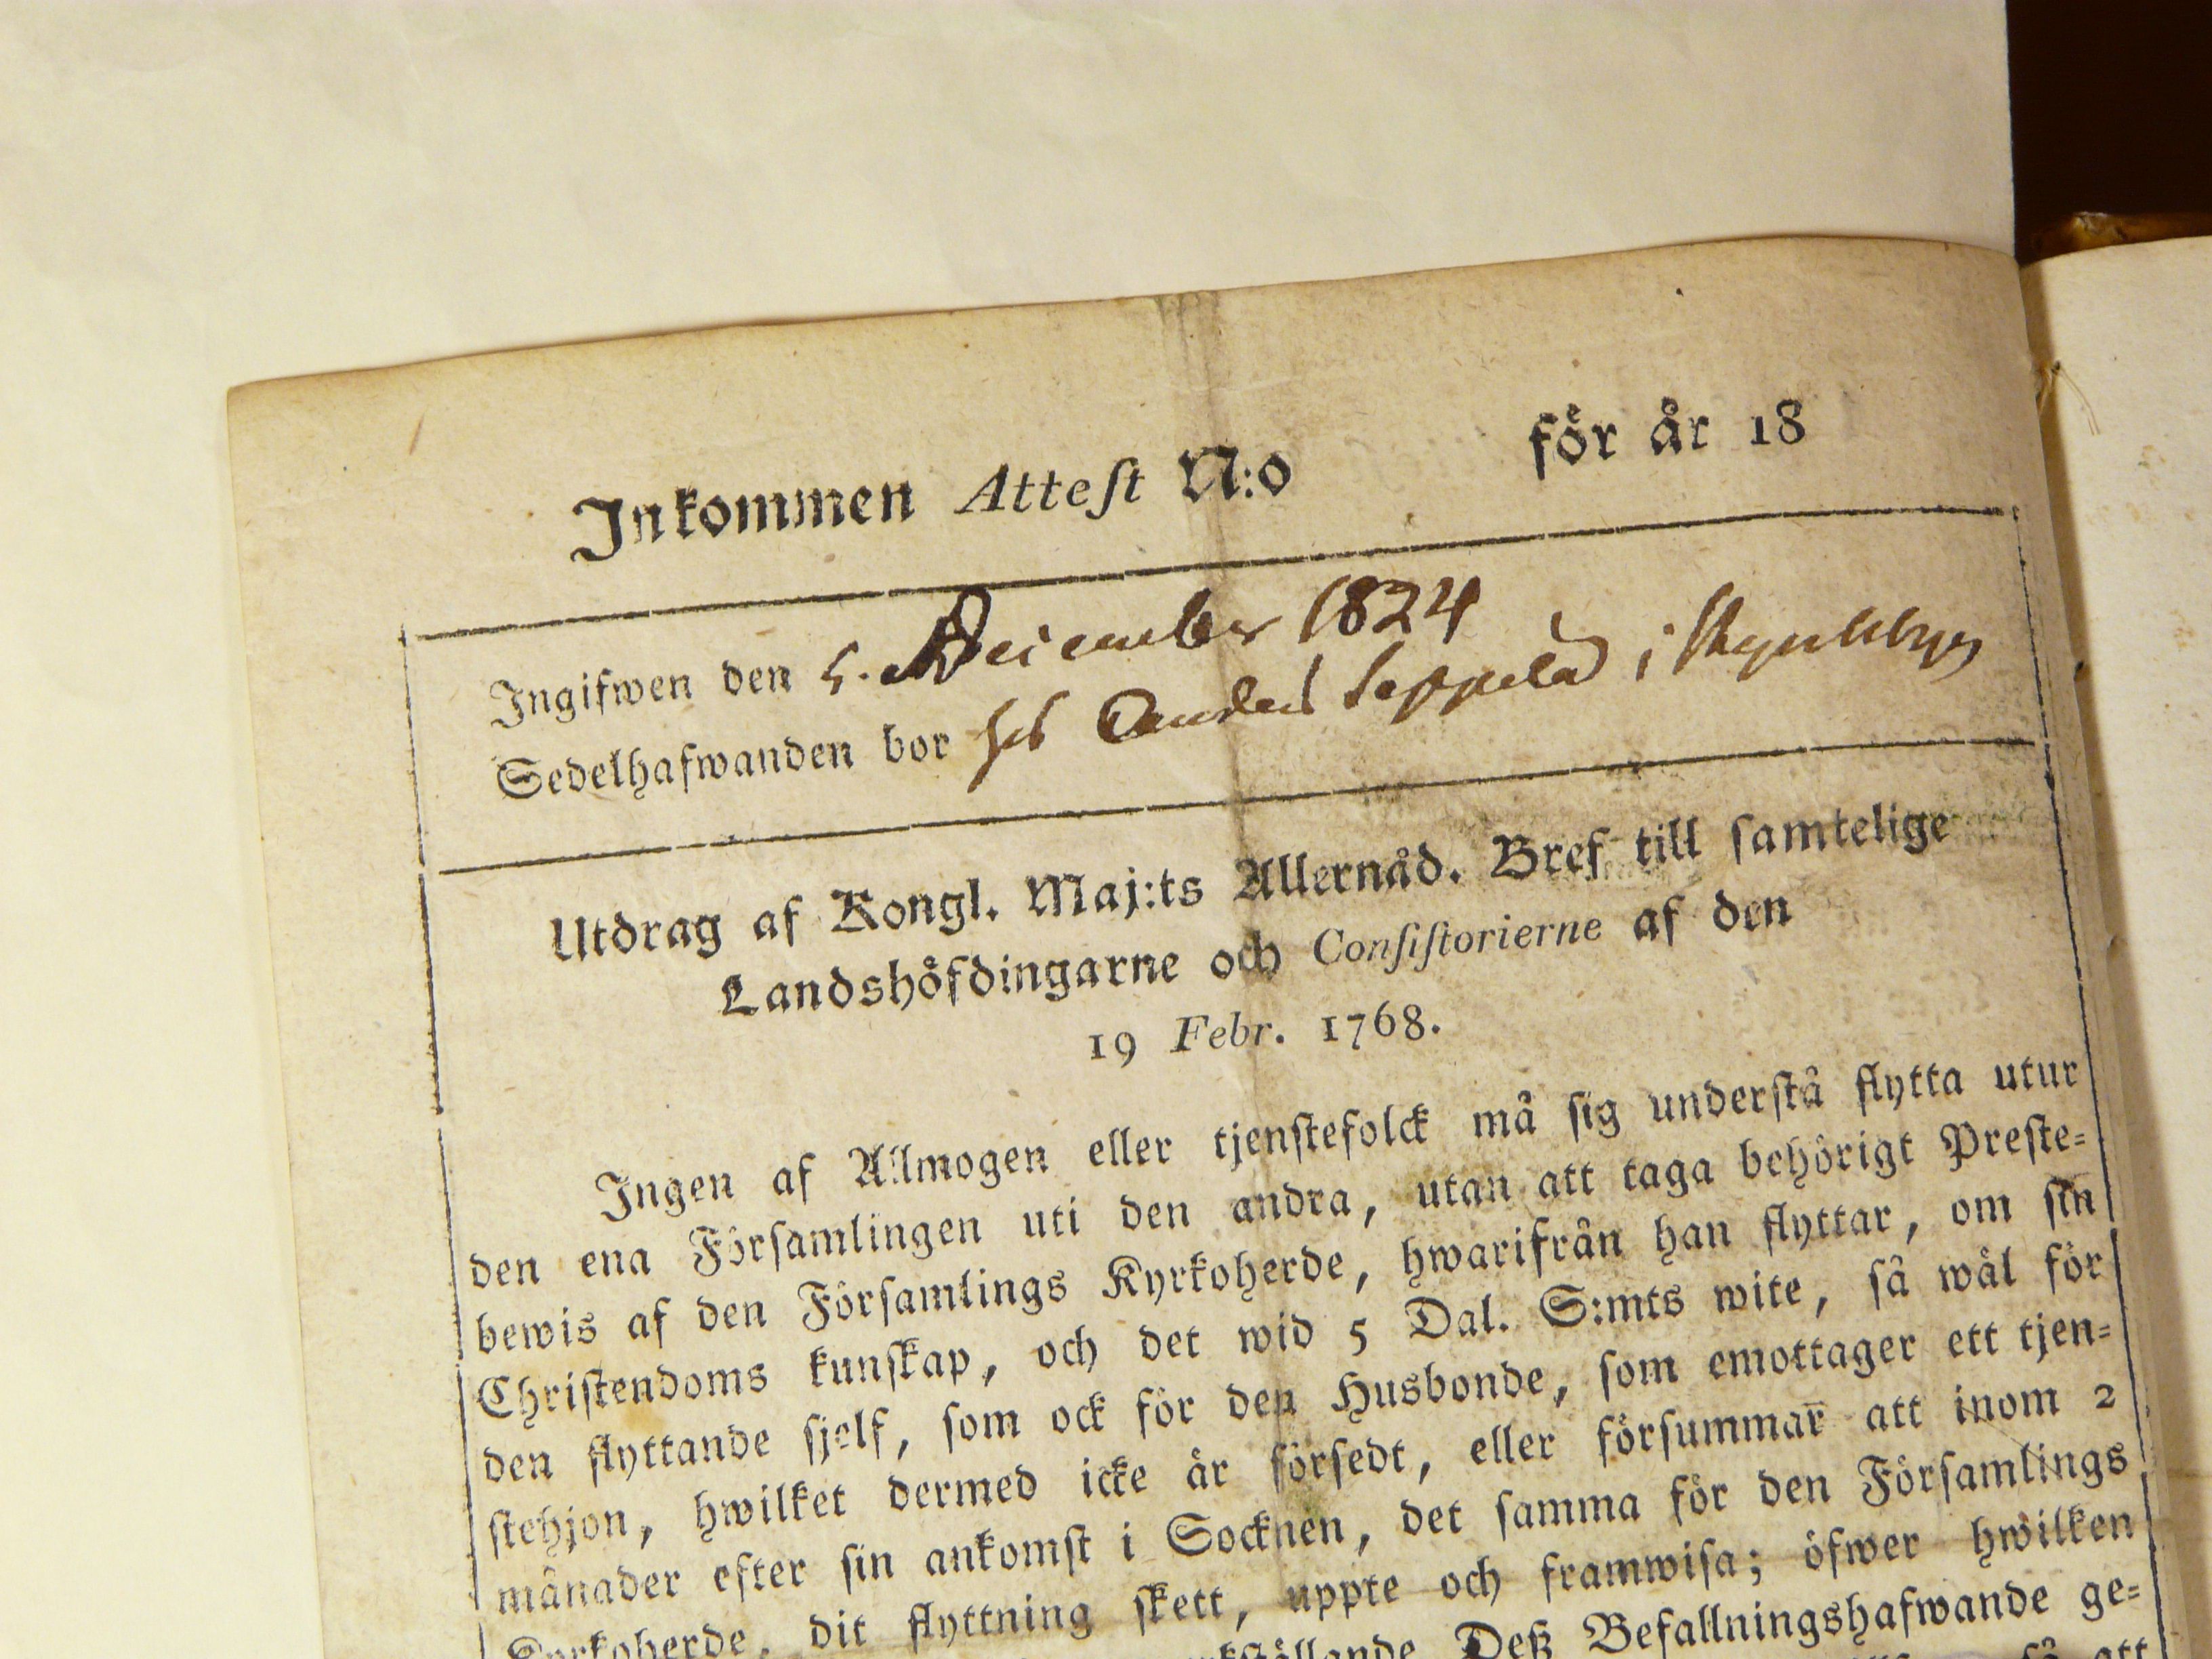 Inkommen Attest N:o för år 18
Ingifwen den 5. December 1824
Sedelhafwanden bor hos Seppelä i
Utdrag af Kongl. Maj:ts Allernåd. Bref till samtelige
Landshöfdingarne och Consistorierne af den
19 Febr. 1768.
Ingen af Allmogen eller tjenstefolck må sig understå flytta utur
den ena Församlingen uti den andra, utan att taga behörigt Preste=
bewis af den Församlings Kyrkoherde, hwarifrån han flyttar, om sin
Christendoms kunskap, och det wid 5 Dal. S:mts wite, så wäl för
den flyttande sjelf, som ock för den Husbonde, som emottager ett tjen=
stehjon, hwilket dermed icke är försedt, eller försummar att inom 2
månader efter sin ankomst i Socknen, det samma för den Församlings
Kyrkoherde, dit flyttning skett, uppte och framwisa; öfwer hwilken
Deß Befallningshafwande ge=
så att